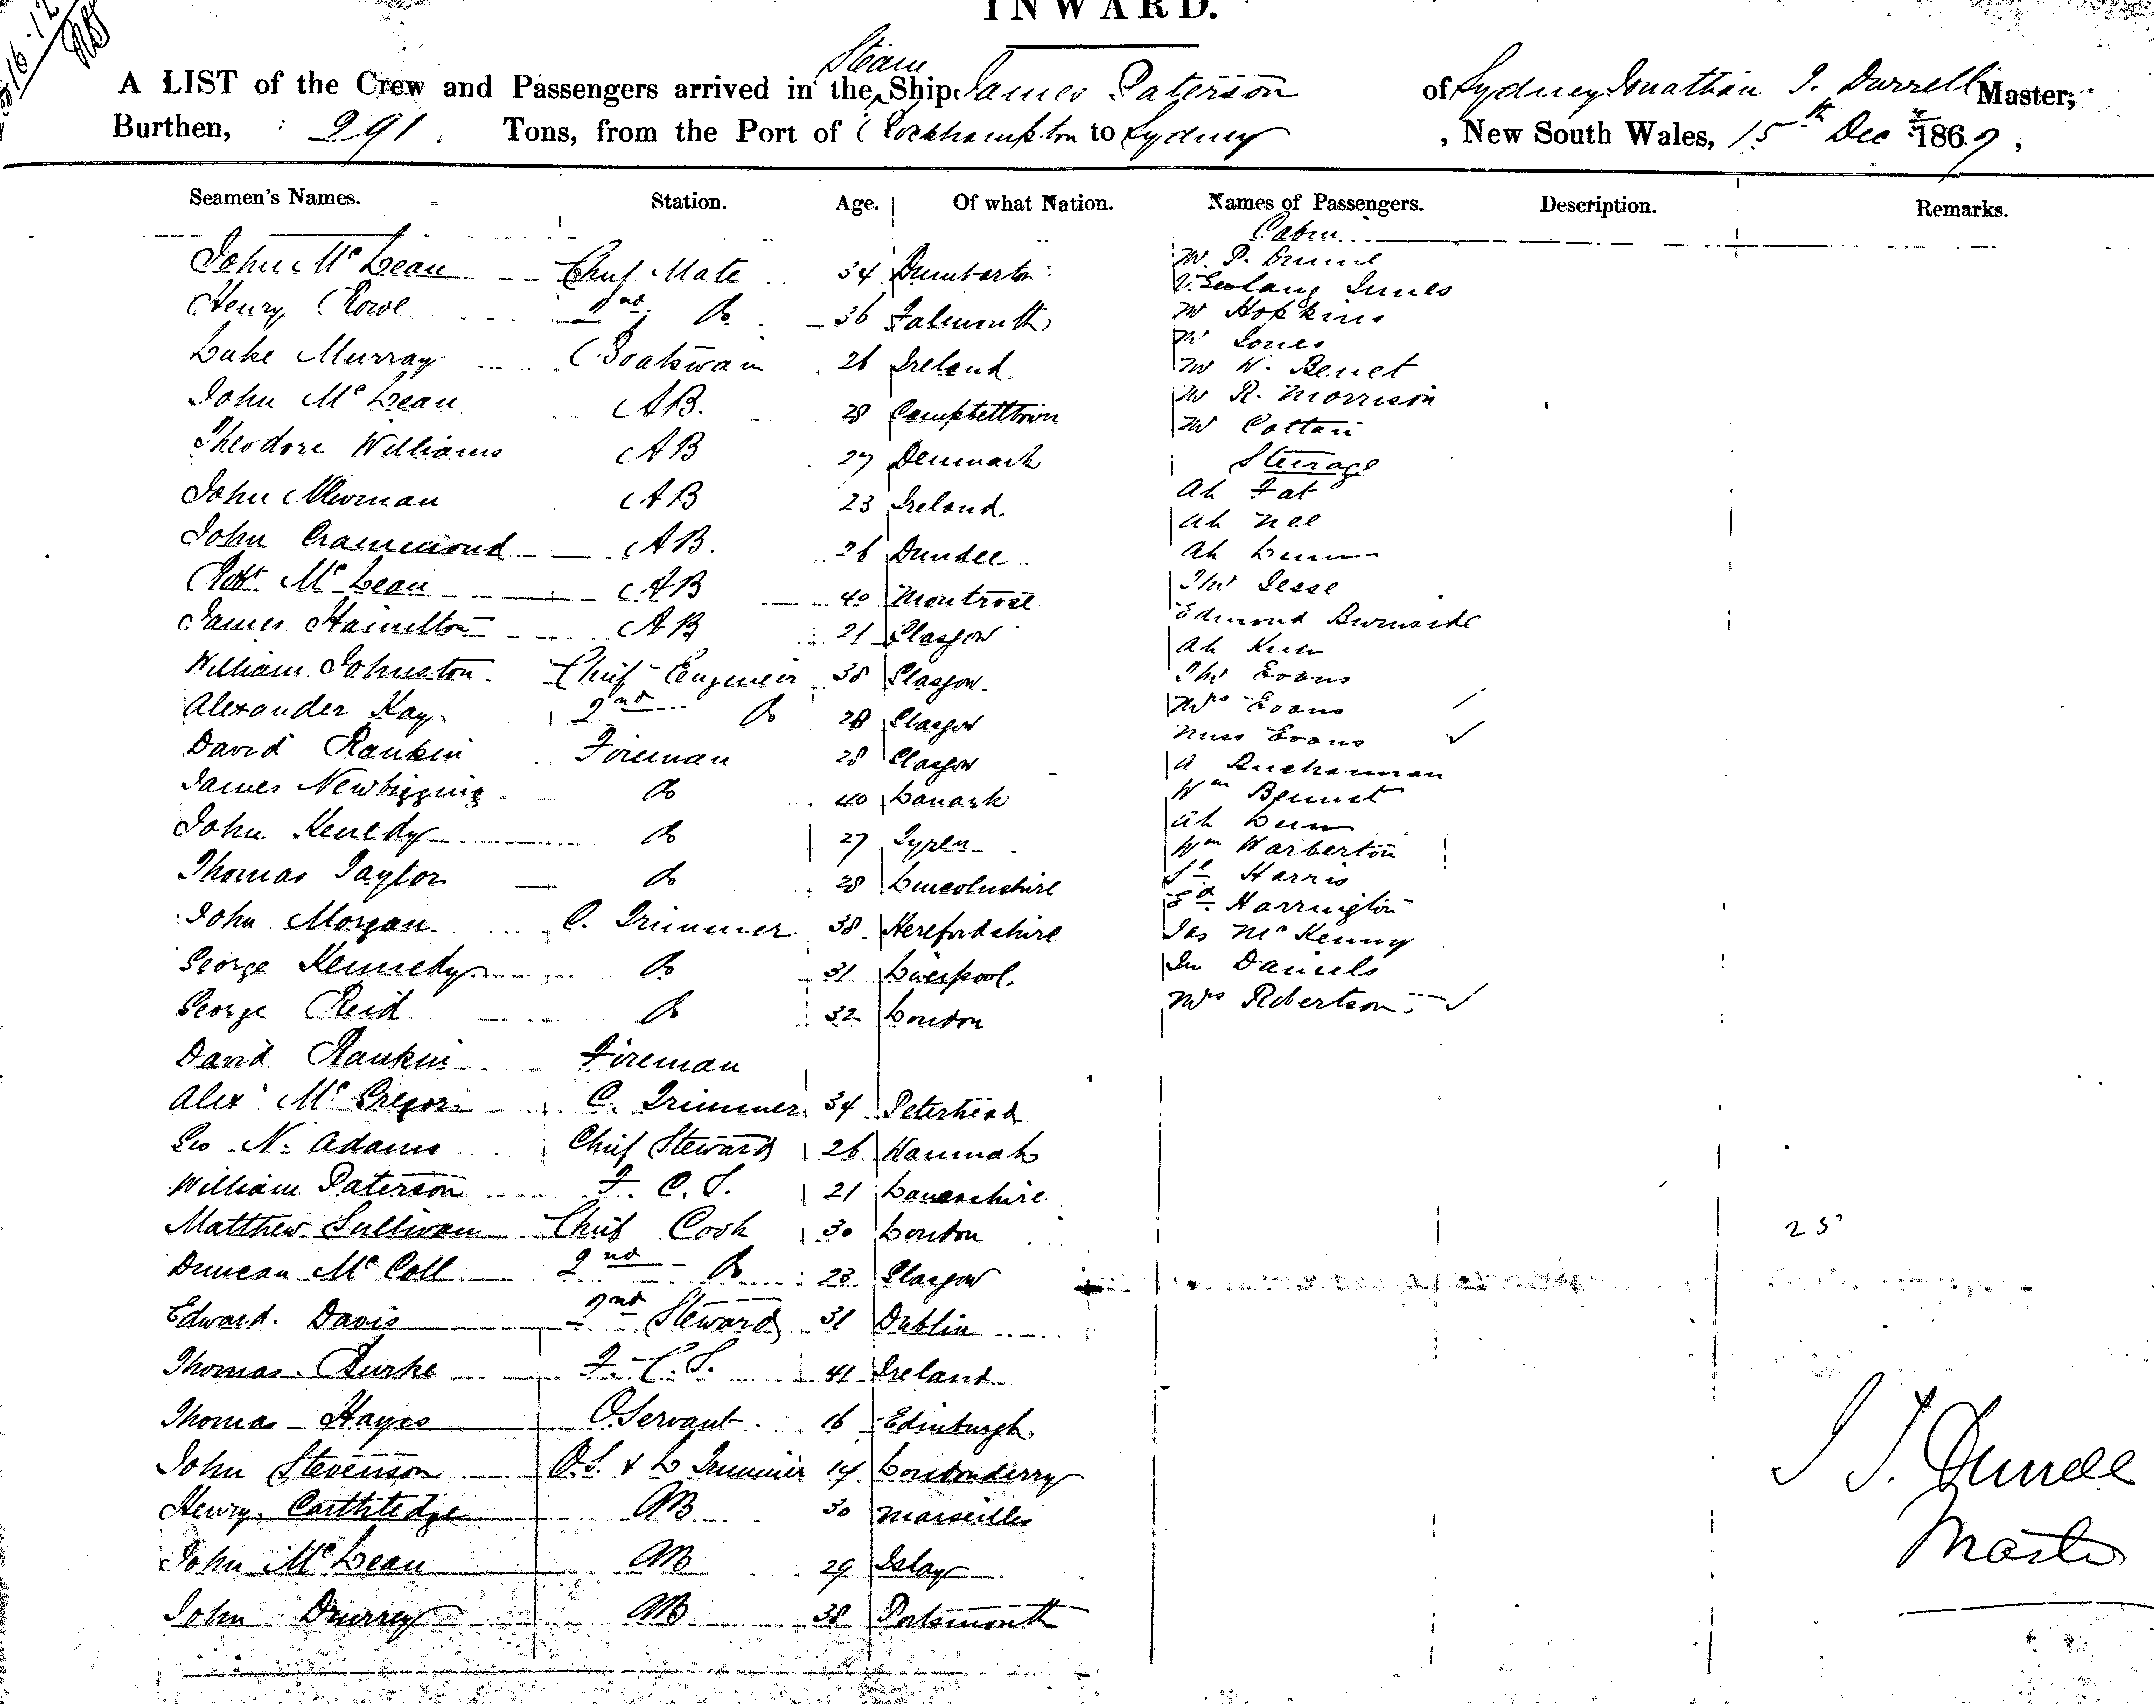 INWARD.
A LIST of the Crew and Passengers arrived in the Steam Ship James Paterson of Sydney Jonathan J. Durrell Master,
Burthen, 291 Tons, from the Port of Rockhampton to Sydney, New South Wales, 15th Dec 1869,
Seamen's Names. Station. Age. Of what Nation. Names of Passengers. Description. Remarks.
Cabin
John McLean Chief Mate 34 Dumbarton
Henry Rowe 2nd Do 36 Falmouth
Luke Murray Boatswain 26 Ireland
John McLean AB. 28 Campbelltown
Theodore Williams AB 27 Denmark
John AB 23 Ireland
John Crammond AB. 26 Dundee
Robt McLean AB 40 Montrose
James Hamilton AB 21 Glasgow
William Johnston Chief Engineer 38 Glasgow
Alexander Kay 2nd Do 28 Glasgow
David Rankin Fireman 28 Glasgow
James Newbigging Do 40 Lanark
John Kenedy Do 27
Thomas Taylor Do 28 Lincolnshire
John Morgan C. Trimmer 38 Herefordshire
George Kennedy Do 31 Liverpool
George Reid Do 32 London
David Rankin Fireman
Alex McGregor C. Trimmer 34 Peterhead
Geo N. Adams Chief Steward 26
William Paterson F. C. S. 21 Lanarkshire
Matthew Sullivan Chief Cook 30 London
Duncan McColl 2nd Do 23 Glasgow
Edward Davis 2nd Steward 31 Dublin
Thomas Burke F. C. S. 41 Ireland
Thomas Hayes O. Servant 16 Edinburgh
John Stevenson O.S. & L Trimmer 14 Londonderry
Henry AB 30 Marseilles
John McLean AB 29 Islay
John Drurrey AB 38 Portsmouth
Innes
Mr Hopkins
Mr Jones
Mr W. Benet
Mr R. Morrison
Mr
Steerage
Ah Fat
Ah Nee
Ah
Thos Jesse
Edmond Burnside
Ah
Thos Evans
Mrs Evans
Miss Evans
A Buchannan
Wm Bennet
Ah
Wm Warberton
Harris
Ed Harrington
Jas McKenny
Jn Daniels
Mrs Robertson
25
J J. Durrell
Master